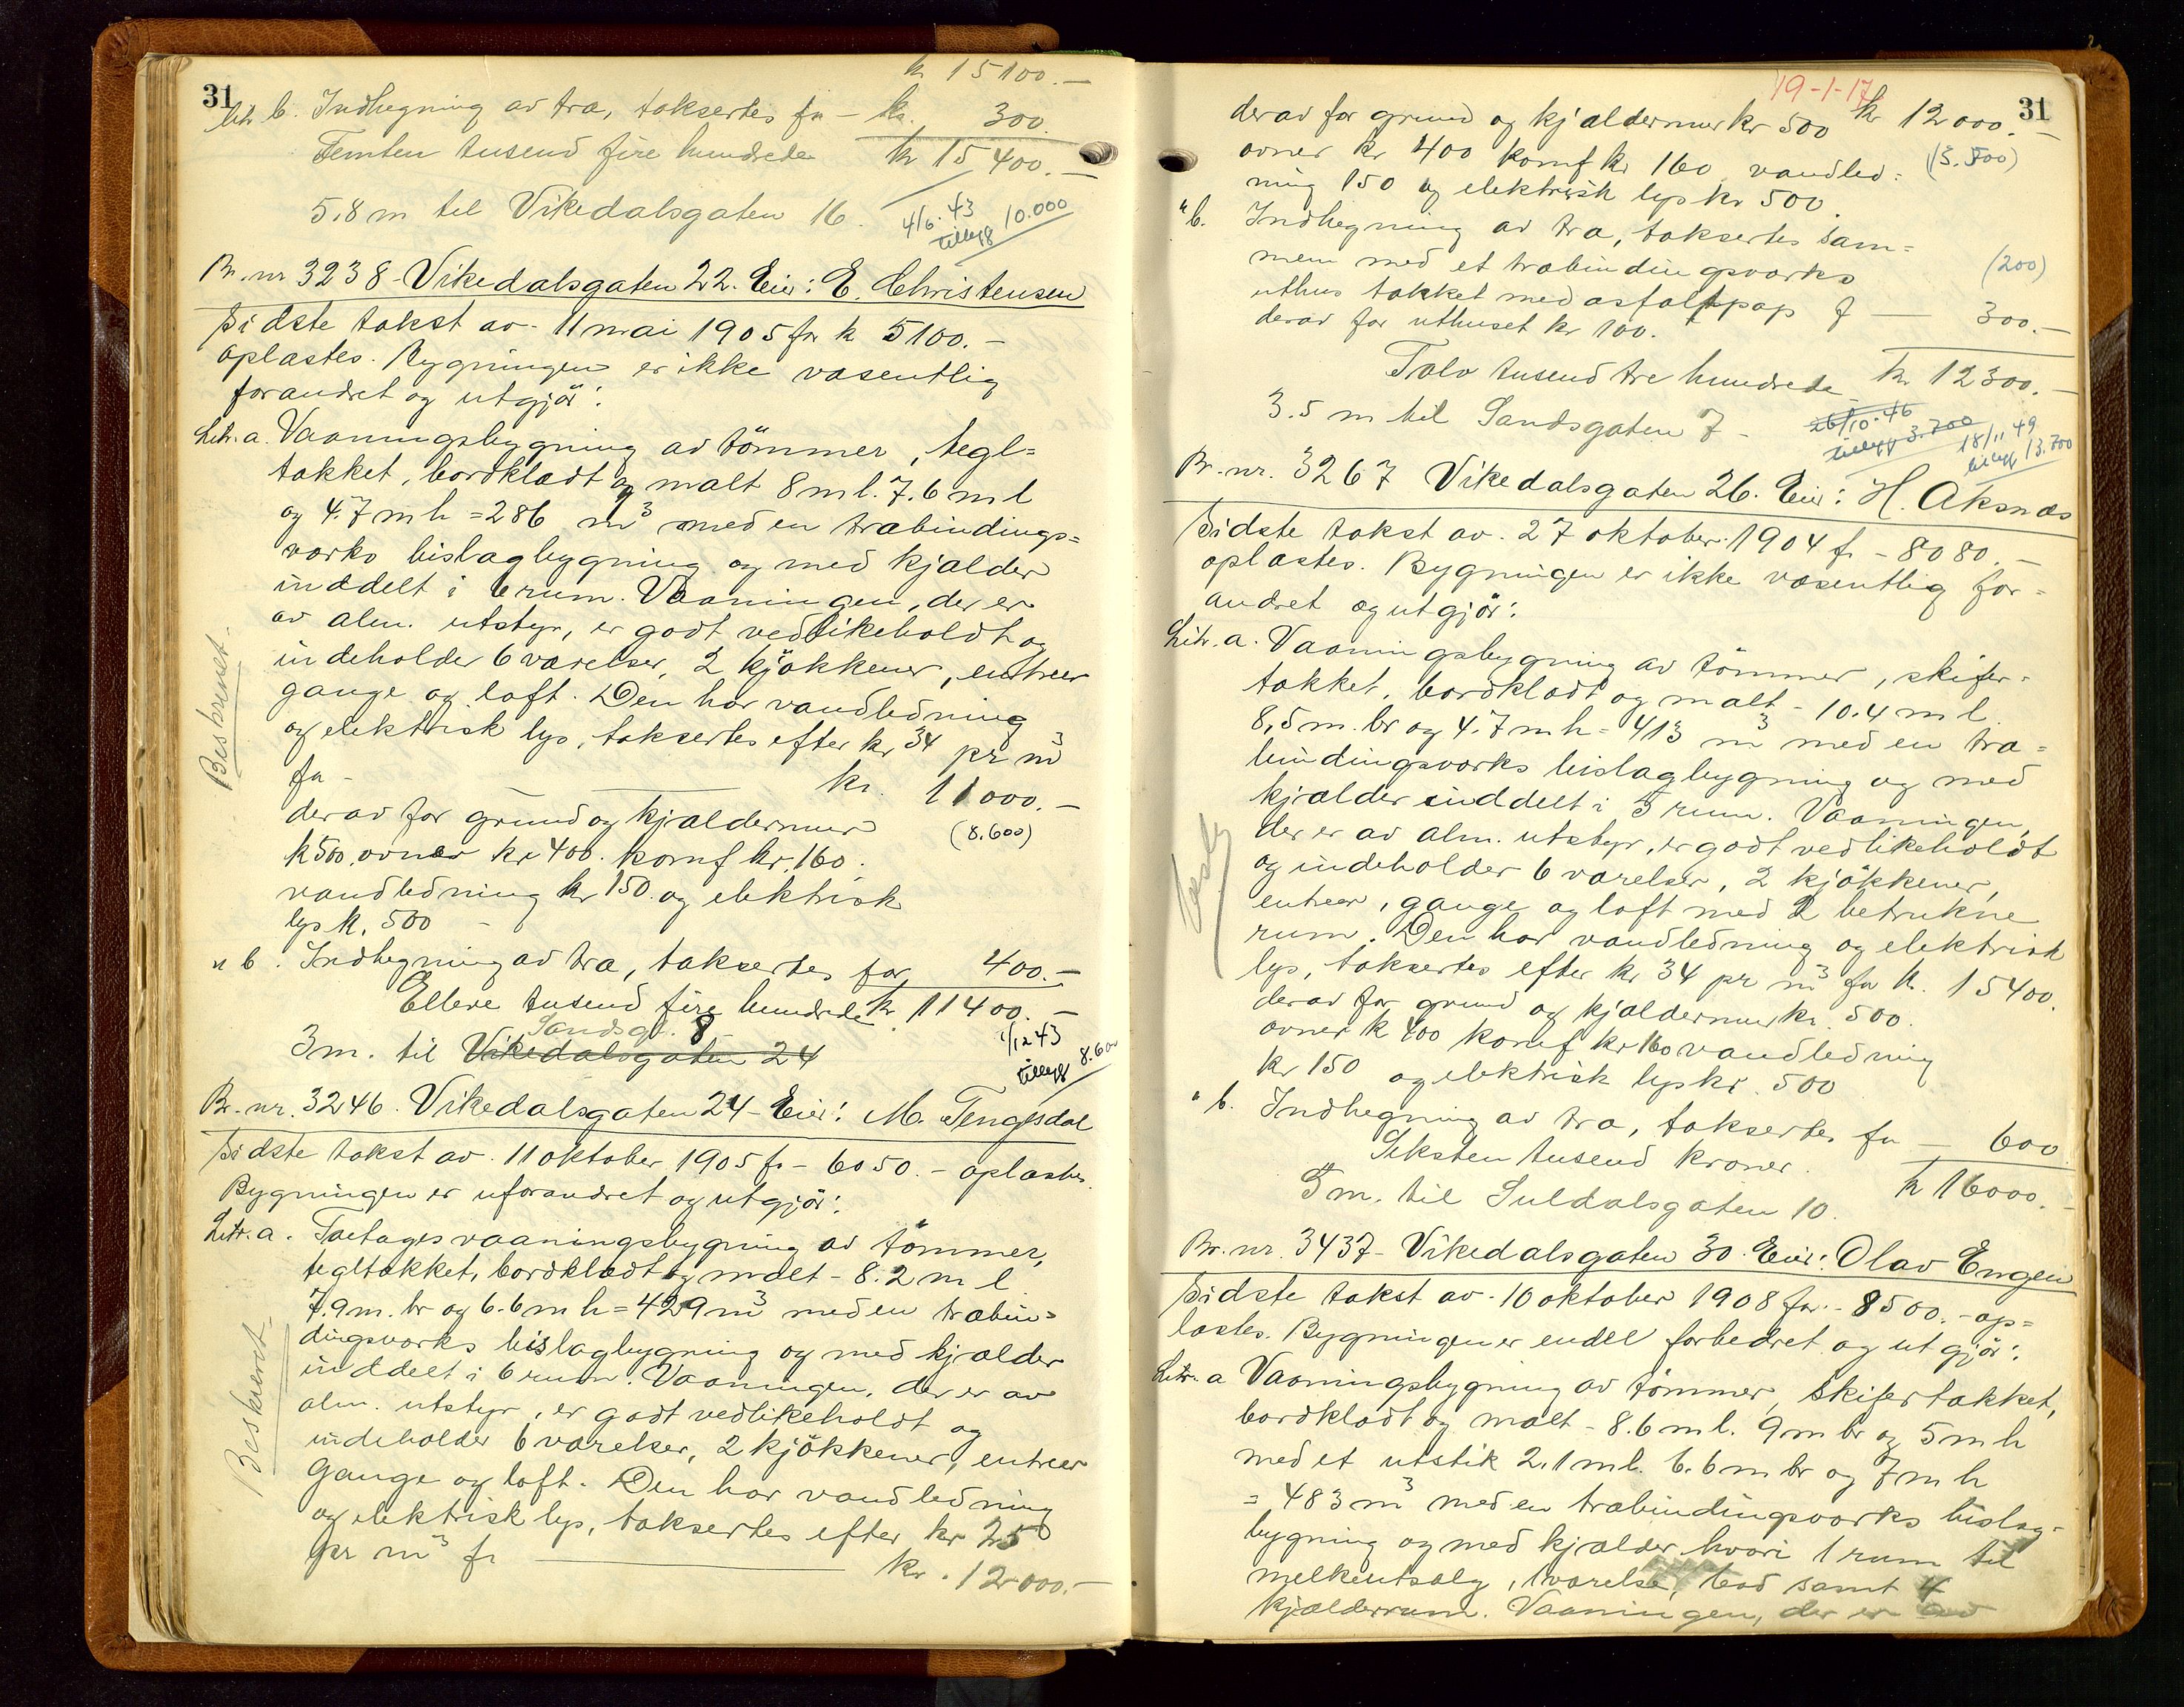 31
kr 15100.—
Litr b. Indhegning av træ, taksertes for — kr. 300.
Femten tusend fire hundrede kr 15400.—
5.8 m til Vikedalsgaten 16.
4/6.43
tillegg 10.000
Br. nr 3238 - Vikedalsgaten 22. Eier: E. Christensen
Sidste takst av 11 mai 1905 for k 5100.—
oplæstes. Bygningen er ikke væsentlig
forandret og utgjör:
Litr. a. Vaaningsbygning av tömmer, tegl=
tækket, bordklædt og malt 8 m l. 7.6 m l
og 4.7 m h = 286 m³ med en træbindings=
værks bislagbygning og med kjælder
inddelt i 6 rum. Vaaningen, der er
av alm. utstyr, er godt vedlikeholdt og
indeholder 6 værelser, 2 kjökkener, entreer
gange og loft. Den har vandledning
og elektrisk lys, taksertes efter kr 34 pr m³
for — kr. 11000.—
derav for grund og kjældermur (8.600)
k 500. ovner kr 400. komf kr. 160.
vandledning kr 150. og elektrisk
lys k. 500 —
Beskrevet.
" b. Indhegning av træ, taksertes for 400.—
Elleve tusend fire hundrede kr. 11400.—
Sandsgt. 8
3 m. til Vikedalsgaten 24
1/12 43
tillegg 8.600
Br. nr. 3246. Vikedalsgaten 24 - Eier: M. Tengesdal
Sidste takst av 11 oktober 1905 fr - 6050.- oplæstes.
Bygningen er uforandret og utgjör:
Litr. a. Toetages vaaningsbygning av tömmer,
tegltækket, bordklædt og malt - 8.2 m l
7.9 m. br og 6.6 m h = 429 m³ med en træbin=
dingsværks bislagbygning og med kjælder
inddelt i 6 rum. Vaaningen, der er av
alm. utstyr, er godt vedlikeholdt og
indeholder 6 værelser, 2 kjökkener, entreer
gange og loft. Den har vandledning
og elektrisk lys, taksertes efter kr 25
pr m³ fr — kr. 12000.—
Beskrevet.
19-1-17
31
derav for grund og kjældermur kr 500 kr 12000.—
ovner kr 400 komf kr 160 vandled= (3.500)
ning 150 og elektrisk lys kr 500.
" b. Indhegning av træ, taksertes sam=
men med et træbindingsværks (200)
uthus tækket med asfaltpap f — 300.—
derav for uthuset kr 100.
Tolv tusend tre hundrede kr 12300.—
3.5 m til Sandsgaten 7 -
26/10.46
tillegg 3.700
18/11 49
tillegg 13.700
Br. nr. 3267 Vikedalsgaten 26. Eier: H. Aksnæs
Sidste takst av 27 oktober 1904 fr - 8080.—
oplæstes. Bygningen er ikke væsentlig for=
andret og utgjör:
Litr. a. Vaaningsbygning av tömmer, skifer=
tækket, bordklædt og malt - 10.4 m l
8,5 m. br og 4.7 m h = 413 m³ med en træ=
bindingsværks bislagbygning og med
kjælder inddelt i 5 rum. Vaaningen,
der er av alm. utstyr, er godt vedlikeholdt
og indeholder 6 værelser, 2 kjökkener,
entreer, gange og loft med 2 betrukne
rum. Den har vandledning og elektrisk
lys, taksertes efter kr 34 pr m³ for k. 15400.
derav for grund og kjældermur kr. 500.
ovner k 400 komf kr 160 vandledning
kr 150 og elektrisk lys kr 500
" b. Indhegning av træ, taksertes for — 600
Seksten tusend kroner. k 16000.—
5 m. til Suldalsgaten 10.
Br. nr. 3437 - Vikedalsgaten 30. Eier: Olav Engen
Sidste takst av 10 oktober 1908 for - 8500.- op=
læstes. Bygningen er endel forbedret og utgjör:
Litr. a Vaaningsbygning av tömmer, skifertækket,
bordklædt og malt - 8.6 m l. 9 m br og 5 m h
med et utstik 2.1 m l. 6.6 m br og 7 m h
= 483 m³ med en træbindingsværks bislag-
bygning og med kjælder hvori 1 rum til
melkeutsalg, 1 værelse, bod samt 4
kjælderrum. Vaaningen, der er av